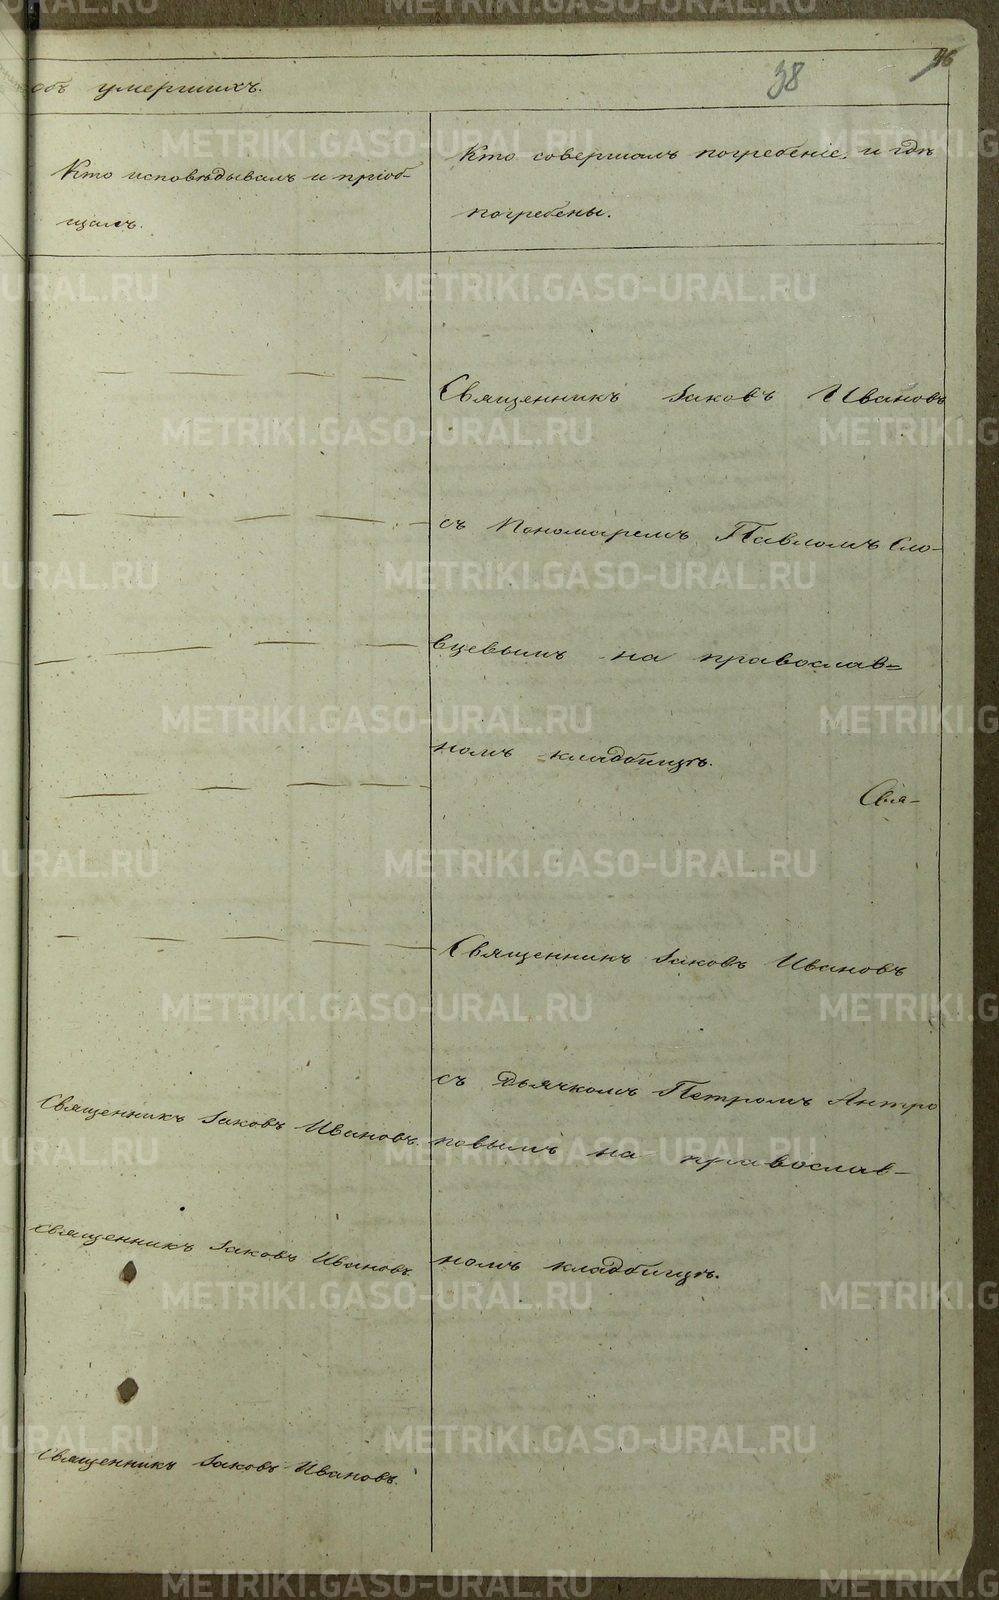 38
объ умершихъ.
Кто исповѣдывалъ и пріоб-
щалъ.
Кто совершалъ погребеніе, и гдѣ
погребены.
Священникъ Іаковъ Ивановъ
съ Пономаремъ Павломъ Сло-
вцевымъ на православ=
номъ кладбищѣ.
Свя-
Священникъ Іаковъ Ивановъ
съ Дьячкомъ Петромъ Антро
повымъ на православ-
номъ кладбищѣ.
Священникъ Іаковъ Ивановъ.
Священникъ Іаковъ Ивановъ.
Священникъ Іаковъ Ивановъ.
METRIKI.GASO-URAL.RU